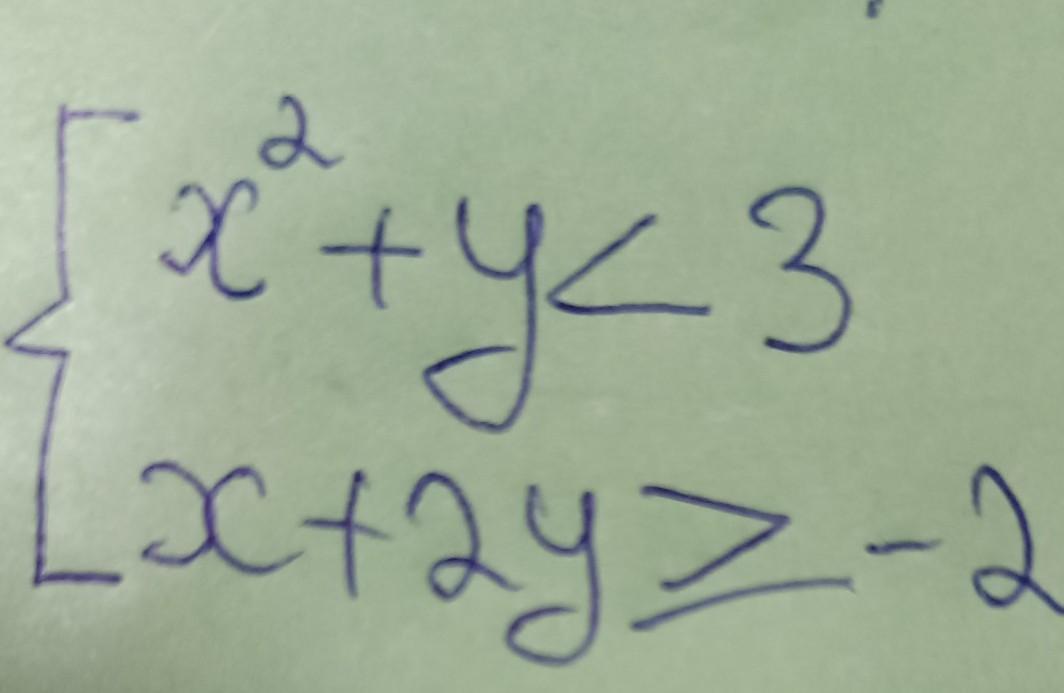 x² + y < 3
x + 2y ≥ -2